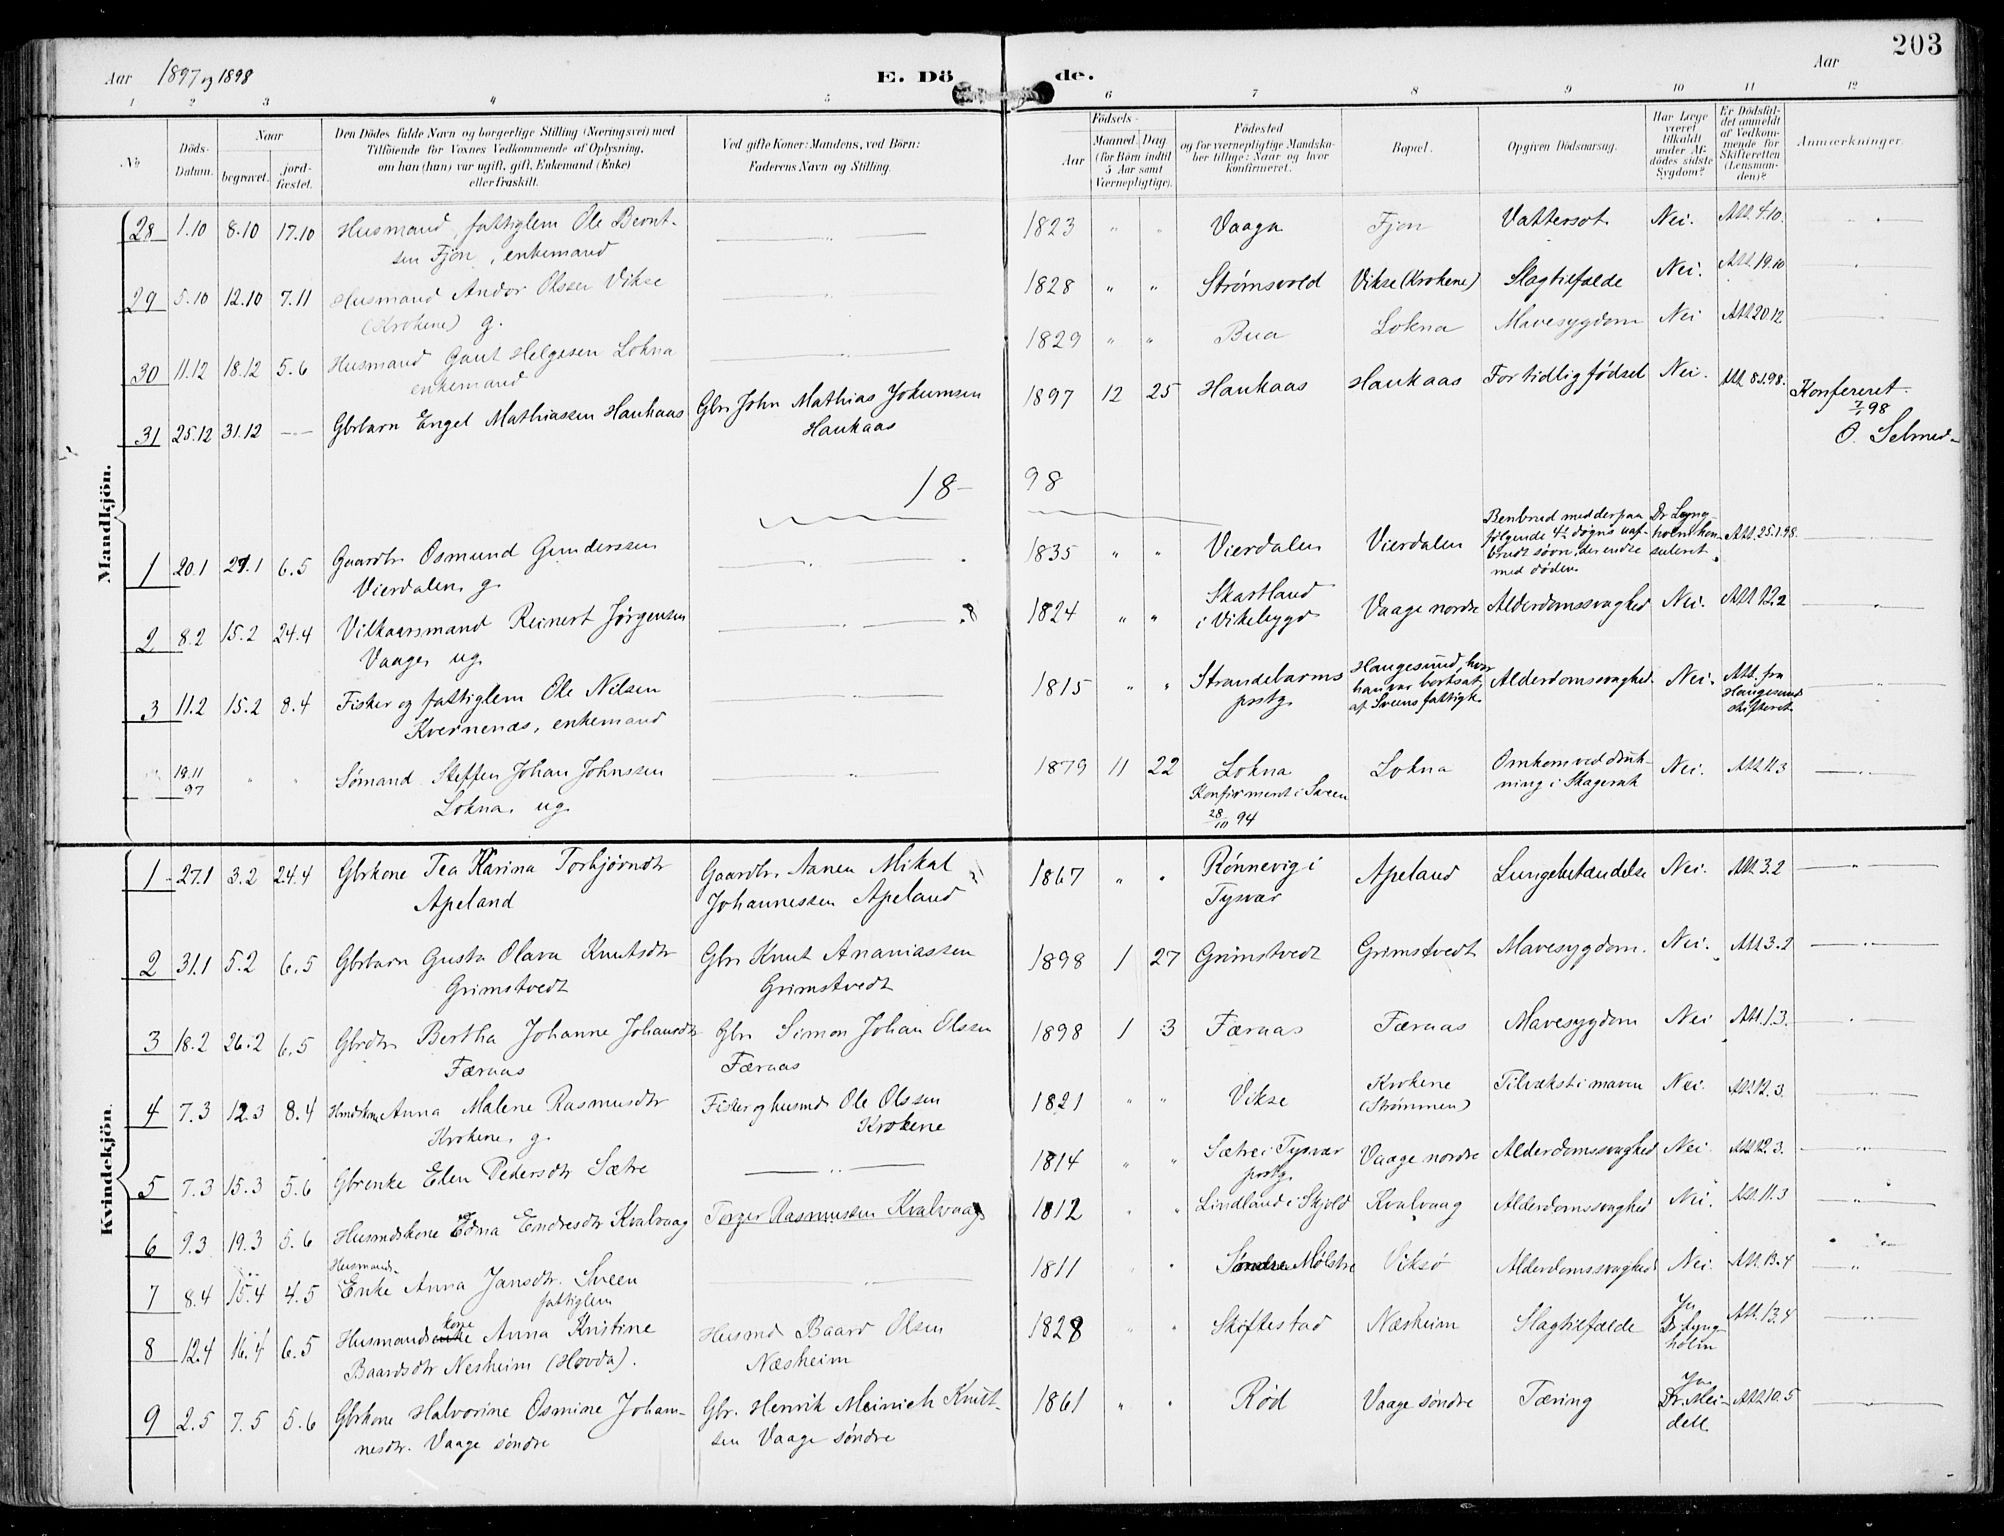 203
Aar 1897 og 1898
E. Döde.
Aar
1 2 3 4 5 6 7 8 9 10 11 12
No
Döds-Datum.
Naar
begravet.
jord-fæstet.
Den Dödes fulde Navn og borgerlige Stilling (Næringsvei) med
Tilföiende for Voxnes Vedkommende af Oplysning,
om han (hun) var ugift, gift, Enkemand (Enke)
eller fraskilt.
Ved gifte Koner: Mandens, ved Börn:
Faderens Navn og Stilling.
Födsels-
Aar
Maaned Dag
(for Börn indtil
5 Aar samt
Værnepligtige).
Födested
og for værnepligtige Mandska-
ber tillige: Naar og hvor
konfirmeret.
Bopæl.
Opgiven Dödsaarsag.
Har Læge
været
tilkaldt
under Af-
dödes sidste
Sygdom?
Er Dödsfal-
det anmeldt
af Vedkom-
mende for
Skifteretten
(Lensman-
den)?
Anmærkninger.
Mandkjön.
28 1.10 8.10 17.10 Husmand, fattiglem Ole Bernt-
sen Fjon, enkemand
1823 " " Vaaga Fjon Vattersot Nei. Att. 4.10.
29 5.10 12.10 7.11 Husmand Andor Olssen Vikse
(Krokene) g.
1828 " " Strømsvold Vikse (Krokene) Slagtilfælde Nei. Att. 19.10
30 11.12 18.12 5.6 Husmand Gaut Helgesen Lokna
enkemand
1829 " " Bua Lokna Mavesygdom Nei Att. 20.12
31 25.12 31.12 — Gbrbarn Engel Mathiassen Haukaas Gbr. John Mathias Jokumsen
Haukaas
1897 12 25 Haukaas Haukaas For tidlig fødsel Nei. Att. 8.1.98. Konfereret
7/1 98
O. Selmer
18-98
1 20.1 27.1 6.5 Gaardbr. Osmund Gunderssen
Vierdalen, g.
1835 " " Vierdalen Vierdalen Benbrud med derpaa
følgende 4 døgns uaf-
brudt søvn, der endte
med døden. Dr. Lyng-
holm kon-
suleret. Att. 25.1.98.
2 8.2 15.2 24.4 Vilkaarsmand Reinert Jørgensen
Vaage, ug.
1824 " " Skartland
i Vikebygd Vaage nordre Alderdomssvaghed Nei. Att. 12.2
3 11.2 15.2 8.4 Fisker og fattiglem Ole Nilsen
Kvernenæs, enkemand
1815 " " Strandebarms
prstg. Haugesund, hvor
han var bortsat
af Sveens fattigk. Alderdomssvaghed. Nei. Att. fra
Haugesunds
skifteret
19.11
97 " " Sømand Steffen Johan Johnssen
Lokna, ug.
1879 11 22 Lokna
Konfirmert i Sveen
28/10 94 Lokna Omkom ved druk-
ning i Skagerak Nei. Att. 11.3
Kvindekjön.
1 27.1 3.2 24.4 Gbrkone Tea Karina Torbjørnsdtr
Apeland Gaardbr. Aanen Mikal
Johannessen Apeland
1867 " " Rønnevig i
Tysvær Apeland Lungebetændelse Nei. Att. 3.2
2 31.1 5.2 6.5 Gbrbarn Gusta Olava Knutsdtr
Grimstvedt Gbr. Knut Ananiassen
Grimstvedt
1898 1 27 Grimstvedt Grimstvedt Mavesygdom. Nei. Att. 3.2
3 18.2 26.2 6.5 Gbrdtr. Bertha Johanne Johansdtr
Færaas Gbr. Simon Johan Olssen
Færaas
1898 1 3 Færaas Færaas Mavesygdom Nei Att. 1.3.
4 7.3 12.3 8.4 Hmdskone Anna Malene Rasmusdtr
Krokene, g. Fisker og husmd. Ole Olssen
Krokene
1821 " " Vikse Krokene
(Strømmen) Tilvækst i maven Nei. Att. 12.3.
5 7.3 15.3 5.6 Gbrenke Elen Pedersdtr Sætre
1814 " " Sætre i Tysvær
prstg. Vaage nordre Alderdomssvaghed Nei. Att. 12.3.
6 9.3 19.3 5.6 Husmdskone Edna Endresdtr Kvalvaag Torger Rasmussen Kvalvaag
1812 " " Lindland i Skjold Kvalvaag Alderdomssvaghed Nei. Att. 11.3
7 8.4 15.4 4.5 Husmands-
Enke Anna Jansdtr. Sveen
fattiglem
1811 " " Søndre Mølstre Viksø Alderdomssvaghed Nei. Att. 13.4
8 12.4 16.4 6.5 Husmandskone Anna Kristine
Baardsdtr Nesheim (Hovda). Husmd Baard Olsen
Næsheim
1828 " " Skiftestad Næsheim Slagtilfælde Ja
Dr. Lyng-
holm Att. 13.4
9 2.5 7.5 5.6 Gbrkone Halvorine Osmine Johan-
nesdtr. Vaage søndre Gbr. Henrik Meinich Knut-
sen Vaage søndre
1861 " " Rød Vaage søndre Tæring Ja
Dr. Mei-
dell Att. 10.5